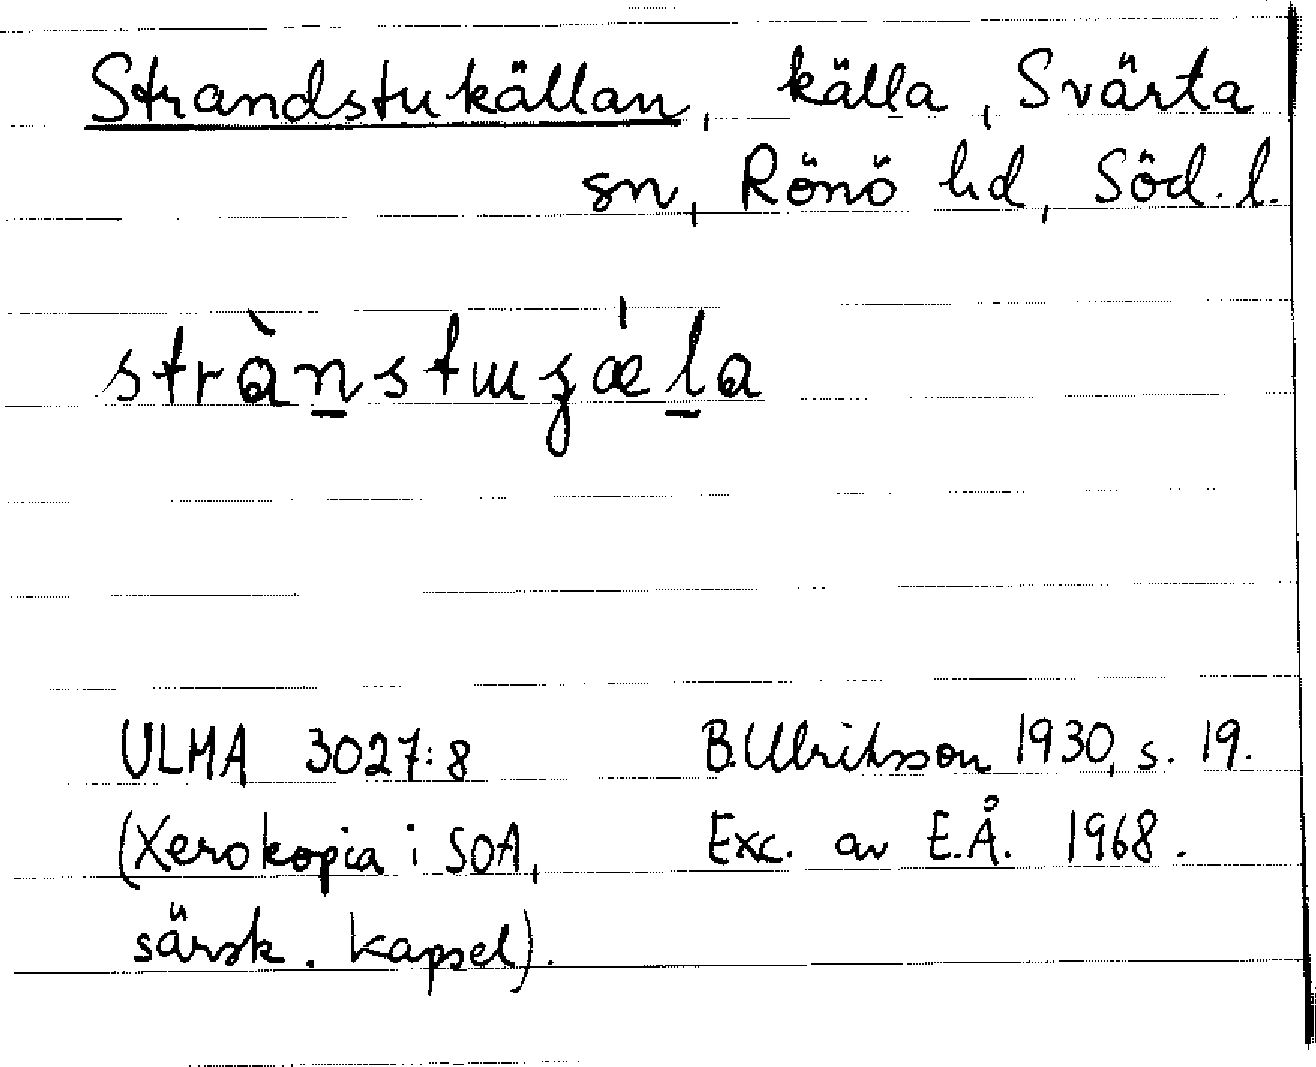 Strandstukällan, källa, Svärta
sn, Rönö hd, Söd. l.
strànstɯʒæ̍la
ULMA 3027:8 B. Ulriksson 1930, s. 19.
(Xerokopia i SOA, Exc. av E.Å. 1968.
särsk. kapsel).